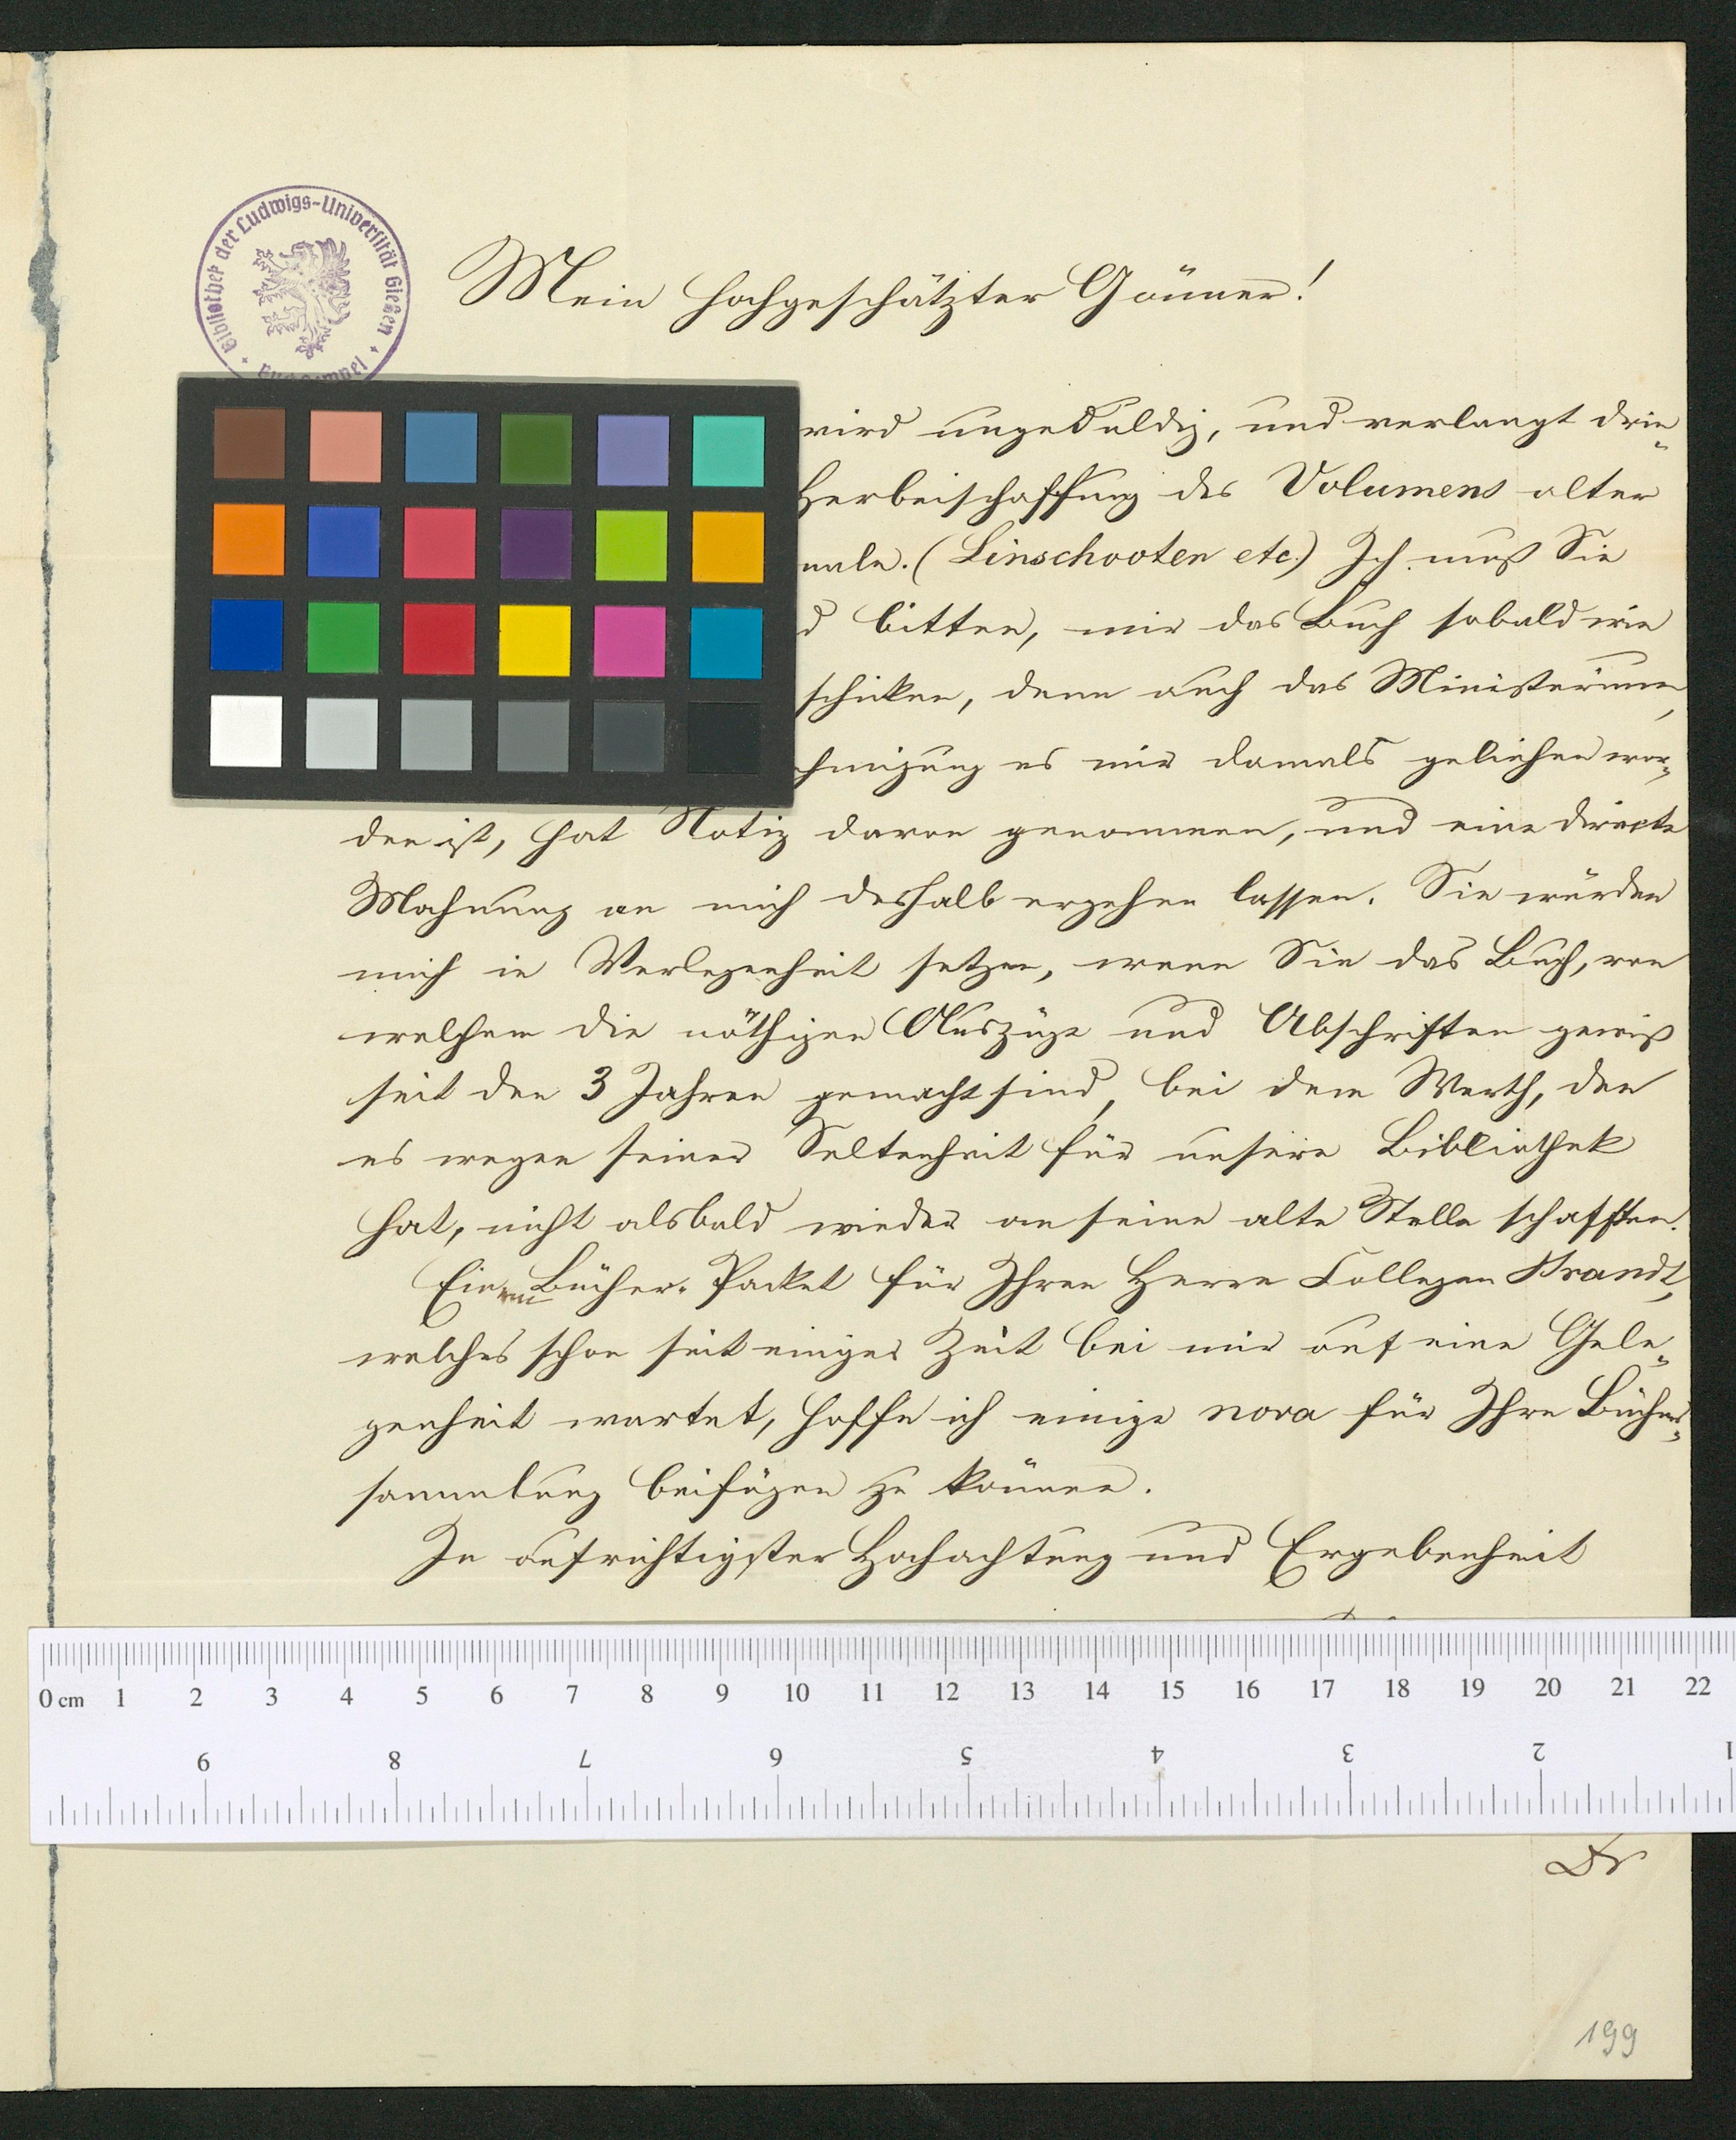 Bibliothek der Ludwigs-Universität Gießen
Mein hochgeschätzter Gönner!
wird ungeduldig, und verlangt drin-
Herbeischaffung des Volumens alter
nale. (Linschooten etc.) Ich muß Sie
d bitten, mir das Buch sobald wie
schicken, denn auch das Ministerium,
hmigung es mir damals geliehen wor-
den ist, hat Notiz davon genommen, und eine directe
Mahnung an mich deshalb ergehen lassen. Sie würden
mich in Verlegenheit setzen, wenn Sie das Buch, von
welchem die nöthigen Auszüge und Abschriften gewiß
seit den 3 Jahren gemacht sind, bei dem Werth, den
es wegen seiner Seltenheit für unsere Bibliothek
hat, nicht alsbald wieder an seine alte Stelle schafften.
Einem Bücher-Packet für Ihren Herrn Collegen Brandt,
welches schon seit einiger Zeit bei mir auf eine Gele-
genheit wartet, hoffe ich einige nova für Ihre Bücher-
sammlung beifügen zu können.
In aufrichtigster Hochachtung und Ergebenheit
0 cm 1 2 3 4 5 6 7 8 9 10 11 12 13 14 15 16 17 18 19 20 21 22
9 8 7 6 5 4 3 2 1
Dr
199